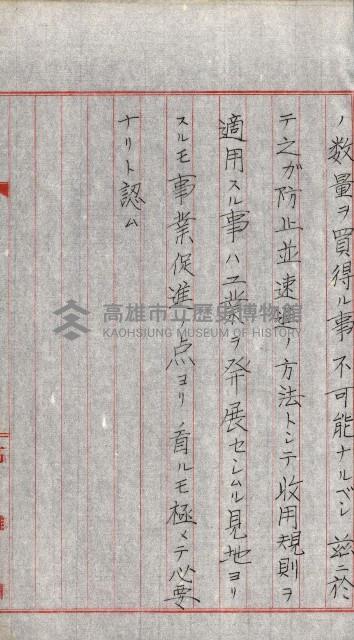 ノ数量ヲ買得ル事不可能ナルベシ 茲ニ於
テ之ガ防止並速進ノ方法トシテ收用規則ヲ
適用スル事ハ工業ヲ発展セシムル見地ヨリ
スルモ事業促進ノ点ヨリ看ルモ極メテ必要
ナリト認ム
高雄市立歷史博物館
KAOHSIUNG MUSEUM OF HISTORY